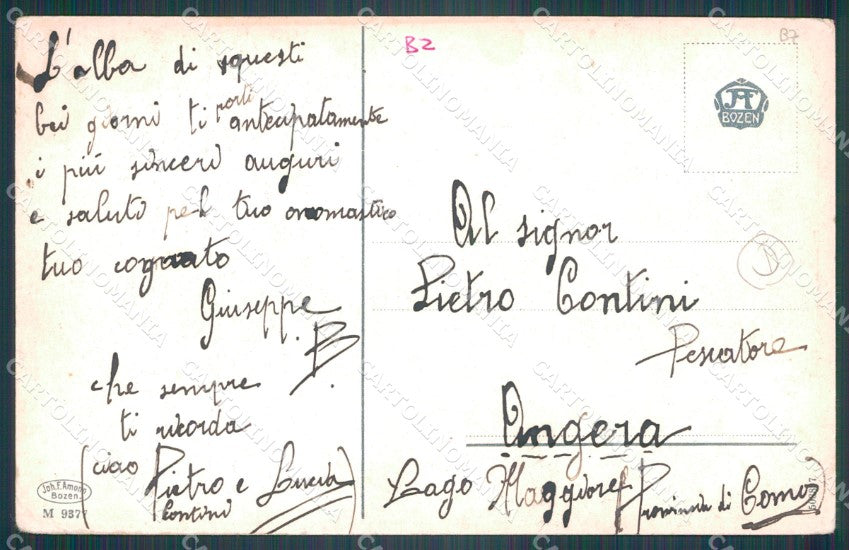 L'alba di questi
bei giorni ti porti antecipatamente
i più sinceri auguri
e saluti pel tuo onomastico
tuo cognato
Giuseppe
B.
che sempre
ti ricorda
(ciao Pietro e Lucia)
Contini
Joh. F. Amonn
Bozen.
M 9377
B2
B7
JAF
BOZEN
Al signor
Pietro Contini
Pescatore
Angera
Lago Maggiore (Provincia di Como)
CARTOLINOMANIA